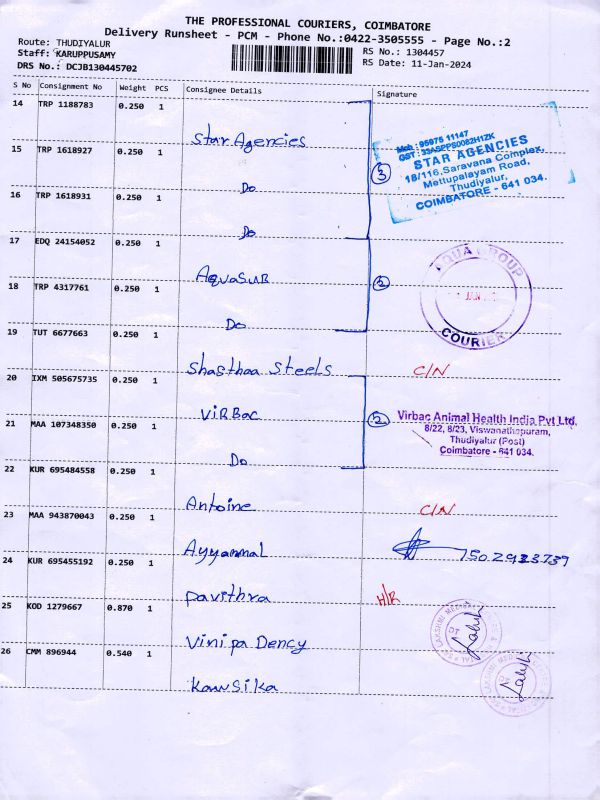 THE PROFESSIONAL COURIERS, COIMBATORE
Delivery Runsheet - PCM - Phone No.:0422-3505555 - Page No.:2
Route: THUDIYALUR
Staff: KARUPPUSAMY
DRS No.: DCJB130445702
RS No.: 1304457
RS Date: 11-Jan-2024
S No Consignment No Weight PCS Consignee Details Signature
14 TRP 1188783 0.250 1 Star Agencies
15 TRP 1618927 0.250 1 Do
16 TRP 1618931 0.250 1 Do
3
Mob : 95975 11147
STAR AGENCIES
18/116, Saravana Complex,
Mettupalayam Road,
Thudiyalur,
COIMBATORE - 641 034.
17 EDQ 24154052 0.250 1 AquaSUB
18 TRP 4317761 0.250 1 Do
2
AQUA GROUP
JAN
COURIER
19 TUT 6677663 0.250 1 Shasthaa Steels C/N
20 IXM 505675735 0.250 1 ViRBac
21 MAA 107348350 0.250 1 Do
2
Virbac Animal Health India Pvt Ltd.
8/22, 8/23, Viswanathapuram,
Thudiyalur (Post)
Coimbatore - 641 034.
22 KUR 695484558 0.250 1 Antoine C/N
23 MAA 943870043 0.250 1 Ayyammal
24 KUR 695455192 0.250 1 Pavithra H/R
25 KOD 1279667 0.870 1 Vinipa Dency
26 CMM 896944 0.540 1 Kawsika